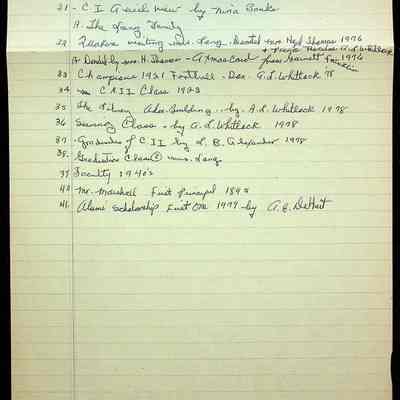 31 - C I I A quick view by Nina Banks
A. The Lang Family
32 Quaker meeting mrs. Lang. Donated mrs Ned Thomas 1976
A Donated by mrs. H. Thomas - A Xmas Card from Garnett Franklin 1976
33 Champions 1921 Football - Don. A. L. Whitlock 78
34 C I I Class 1923
35 The Library Adm. Building - by. A. L. Whitlock 1978
36 Sewing Class - by A. L. Whitlock 1978
37. Graduates of C I I by L. B. Alexander 1978
38. Graduation Class mrs. Lang
39 Faculty 1940's
40 Mr. Marshall First Principal 1895
41. Alumni Scholarship First One 1977 - by A. E. DeHart